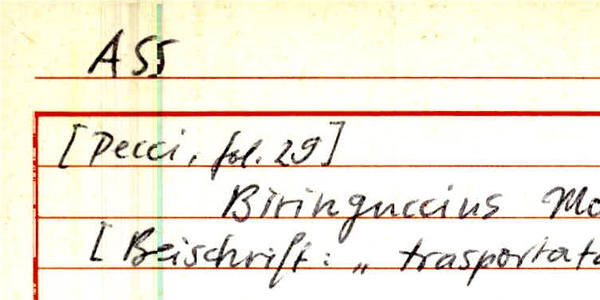 ASS
[Pecci, fol. 29]
Biringuccius Mo
[Beischrift: „ trasportata